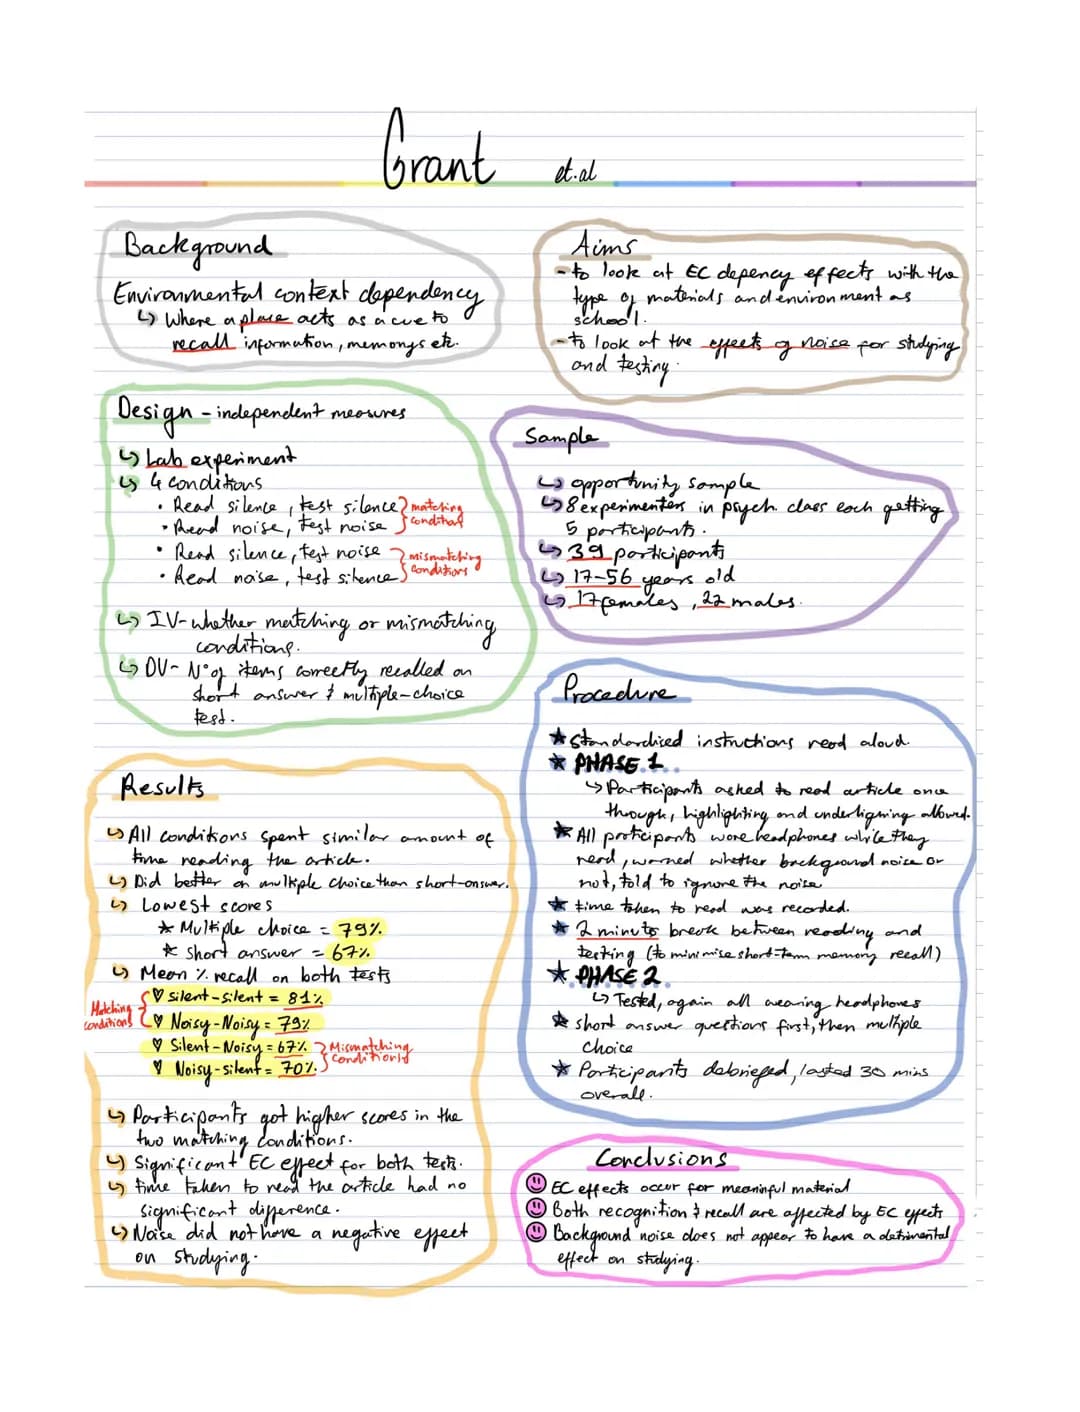 Grant et.al
Background
Environmental context dependency
↳ Where a place acts as a cue to
recall information, memorys etc.
Aims
- to look at EC depency effects with the
type of materials and environment as
school.
- to look at the effects of noise for studying
and testing.
Design - independent measures
↳ Lab experiment
↳ 4 conditions
• Read silence, test silence
• Read noise, test noise
matching
conditions
• Read silence, test noise
• Read noise, test silence
mismatching
conditions
↳ IV- whether matching or mismatching
conditions.
↳ DV- N° of items correctly recalled on
short answer & multiple-choice
test.
Sample
↳ opportunity sample
↳ 8 experimenters in psych. class each getting
5 participants.
↳ 39 participants
↳ 17-56 years old
↳ 17 females, 22 males.
Results
↳ All conditions spent similar amount of
time reading the article.
↳ Did better on multiple choice than short-answer.
↳ Lowest scores
★ Multiple choice = 79%
★ Short answer = 67%
↳ Mean % recall on both tests
Matching
conditions
♡ silent-silent = 81%
♡ Noisy-Noisy = 79%
♡ Silent-Noisy = 67%
♡ Noisy-silent = 70%
Mismatching
conditions
↳ Participants got higher scores in the
two matching conditions.
↳ Significant EC effect for both tests.
↳ time taken to read the article had no
significant difference.
↳ Noise did not have a negative effect
on studying.
Procedure
★ Standardised instructions read aloud.
★ PHASE 1
↳ Participants asked to read article once
through, highlighting and underligning allowed.
★ All participants wore headphones while they
read, warned whether background noice or
not, told to ignore the noise
★ time taken to read was recorded.
★ 2 minute break between reading and
testing (to minimise short-term memory recall)
★ PHASE 2
↳ Tested, again all wearing headphones
★ short answer questions first, then multiple
choice
★ Participants debriefed, lasted 30 mins
overall.
Conclusions
EC effects occur for meaningful material
Both recognition & recall are affected by EC effects
Background noise does not appear to have a detrimental
effect on studying.